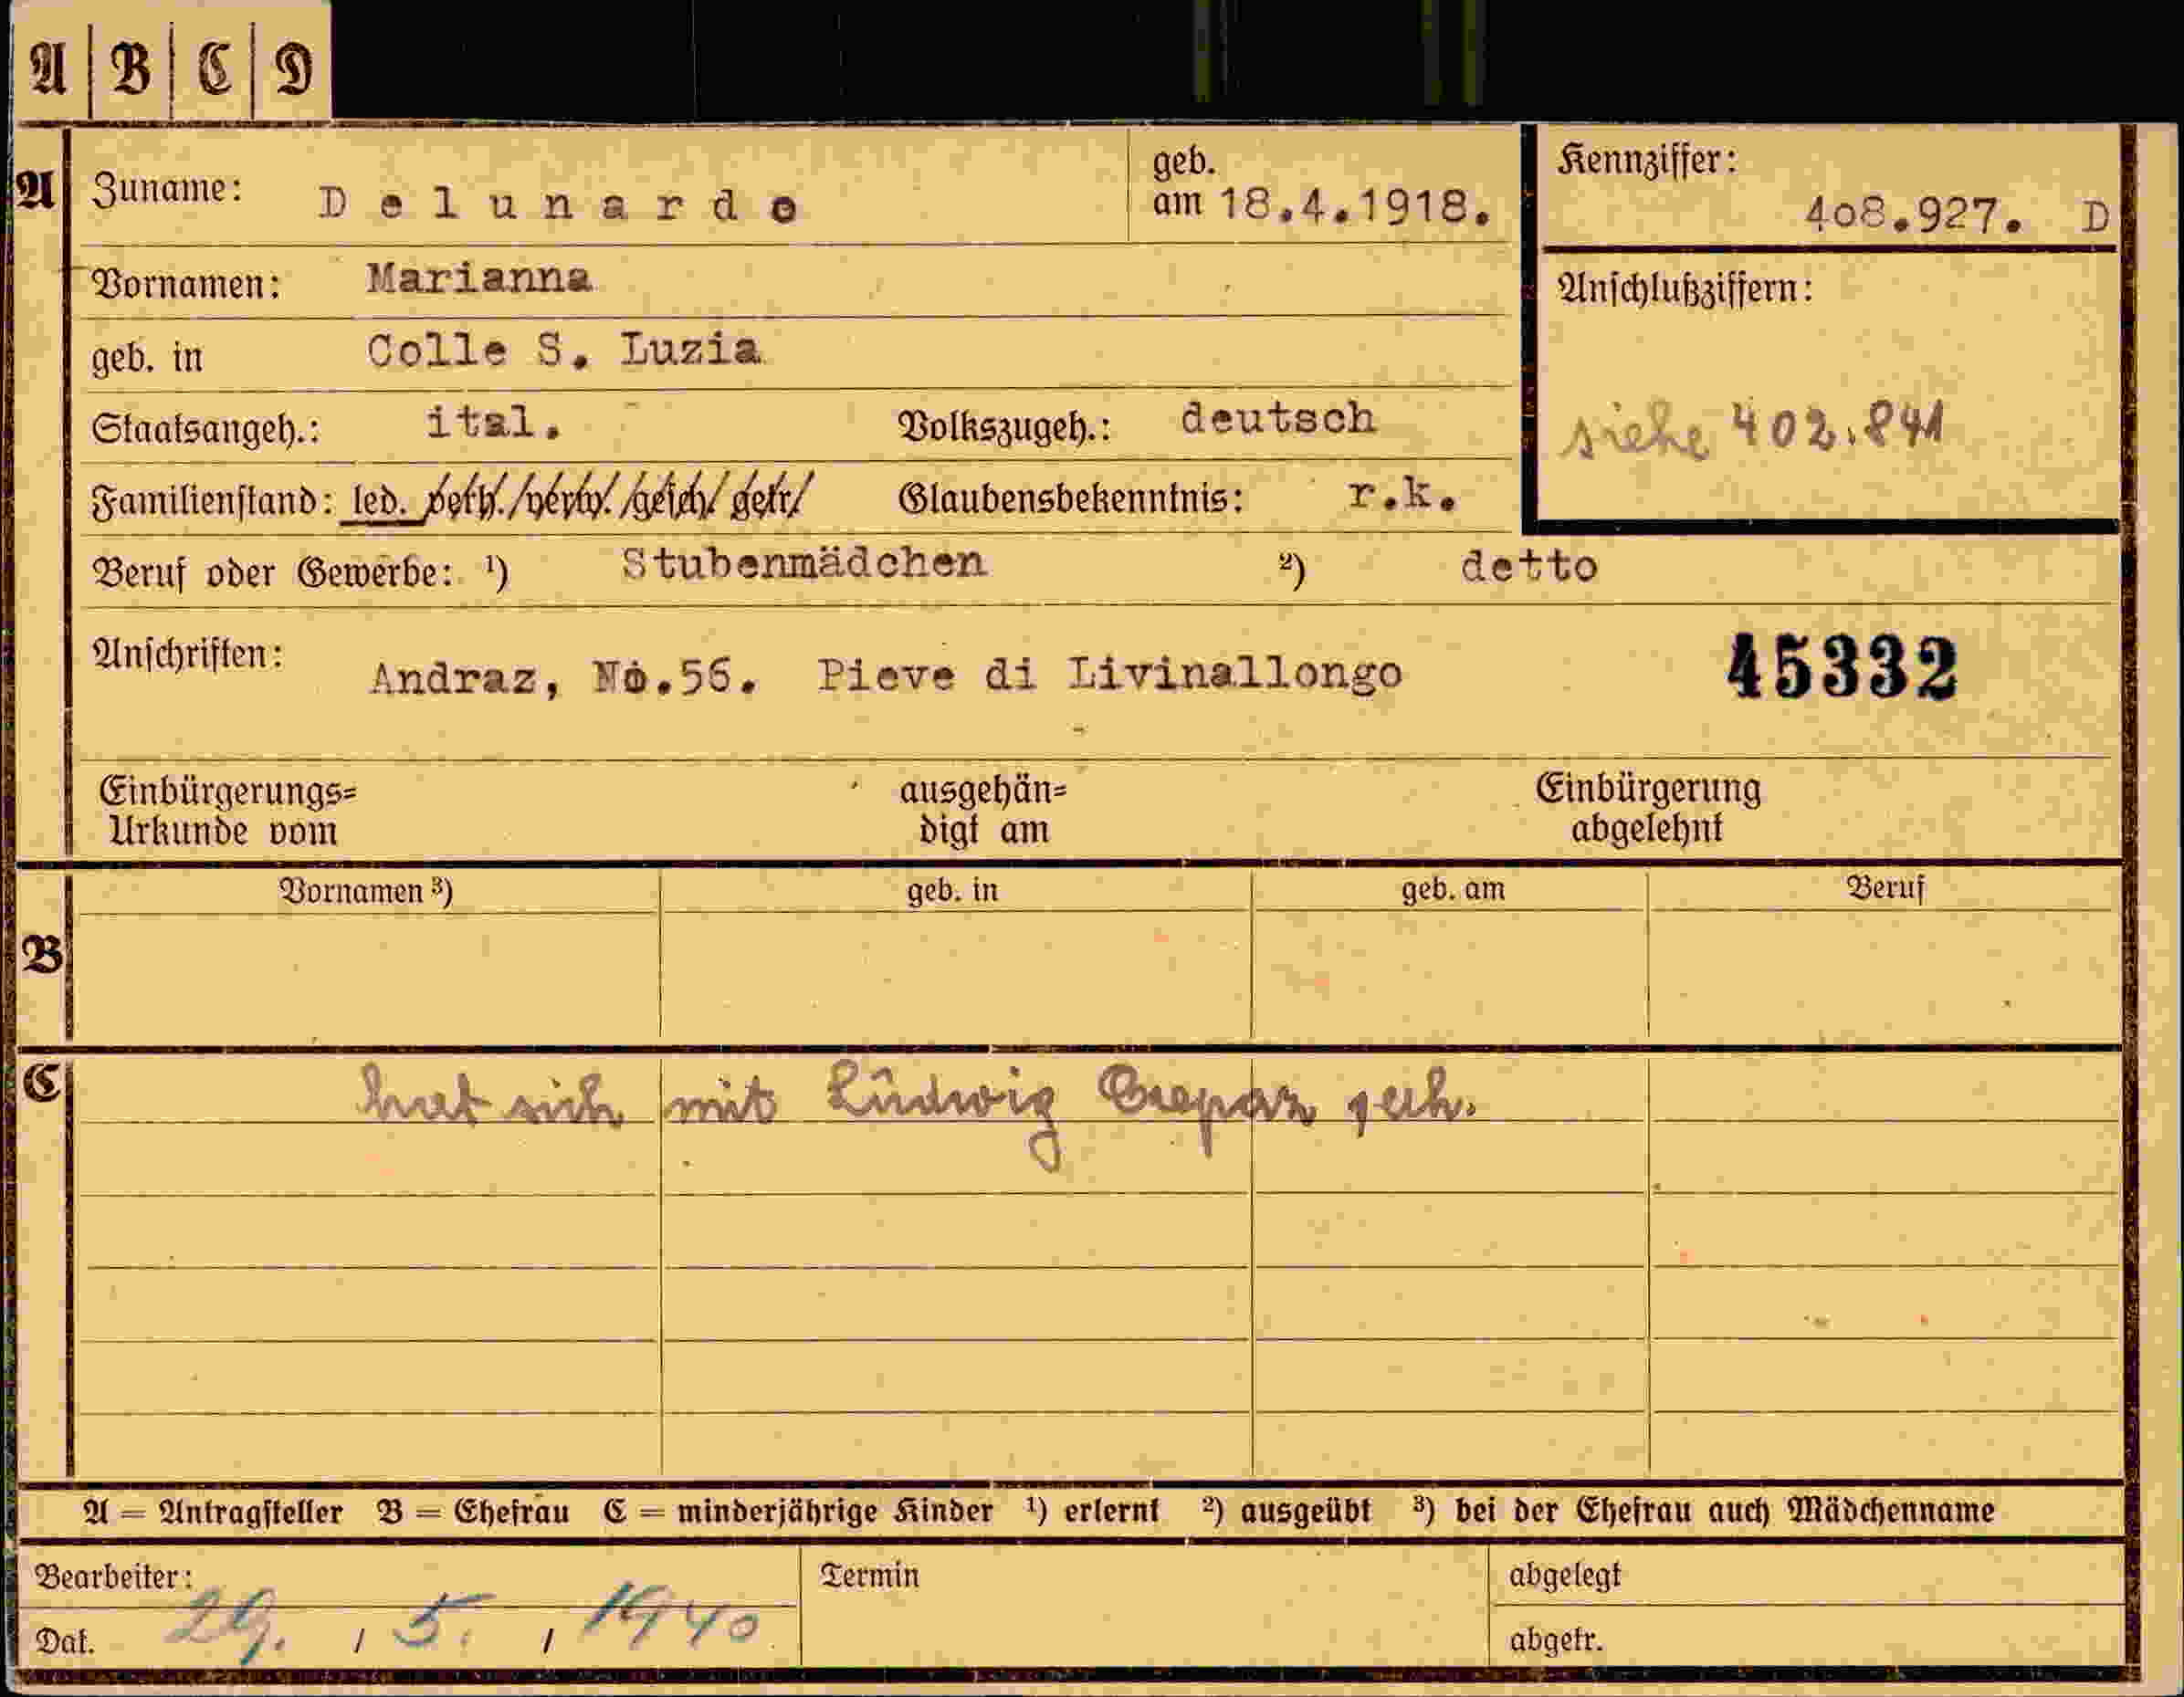 A B C D
A Zuname: Delunardo geb. am 18.4.1918. Kennziffer: 408.927. D
Vornamen: Marianna Anschlußziffern:
geb. in Colle S. Luzia
Staatsangeh.: ital. Volkszugeh.: deutsch siehe 402.841
Familienstand: led. verh./verw./gesch/getr/ Glaubensbekenntnis: r.k.
Beruf oder Gewerbe: ¹) Stubenmädchen ²) detto
Anschriften: Andraz, No.56. Pieve di Livinallongo 45332
Einbürgerungs= ausgehän= Einbürgerung
Urkunde vom digt am abgelehnt
Vornamen ³) geb. in geb. am Beruf
B
C hat sich mit Ludwig Crepaz
A = Antragsteller B = Ehefrau C = minderjährige Kinder ¹) erlernt ²) ausgeübt ³) bei der Ehefrau auch Mädchenname
Bearbeiter: Termin abgelegt
Dat. 29. / 5. / 1940 abgetr.